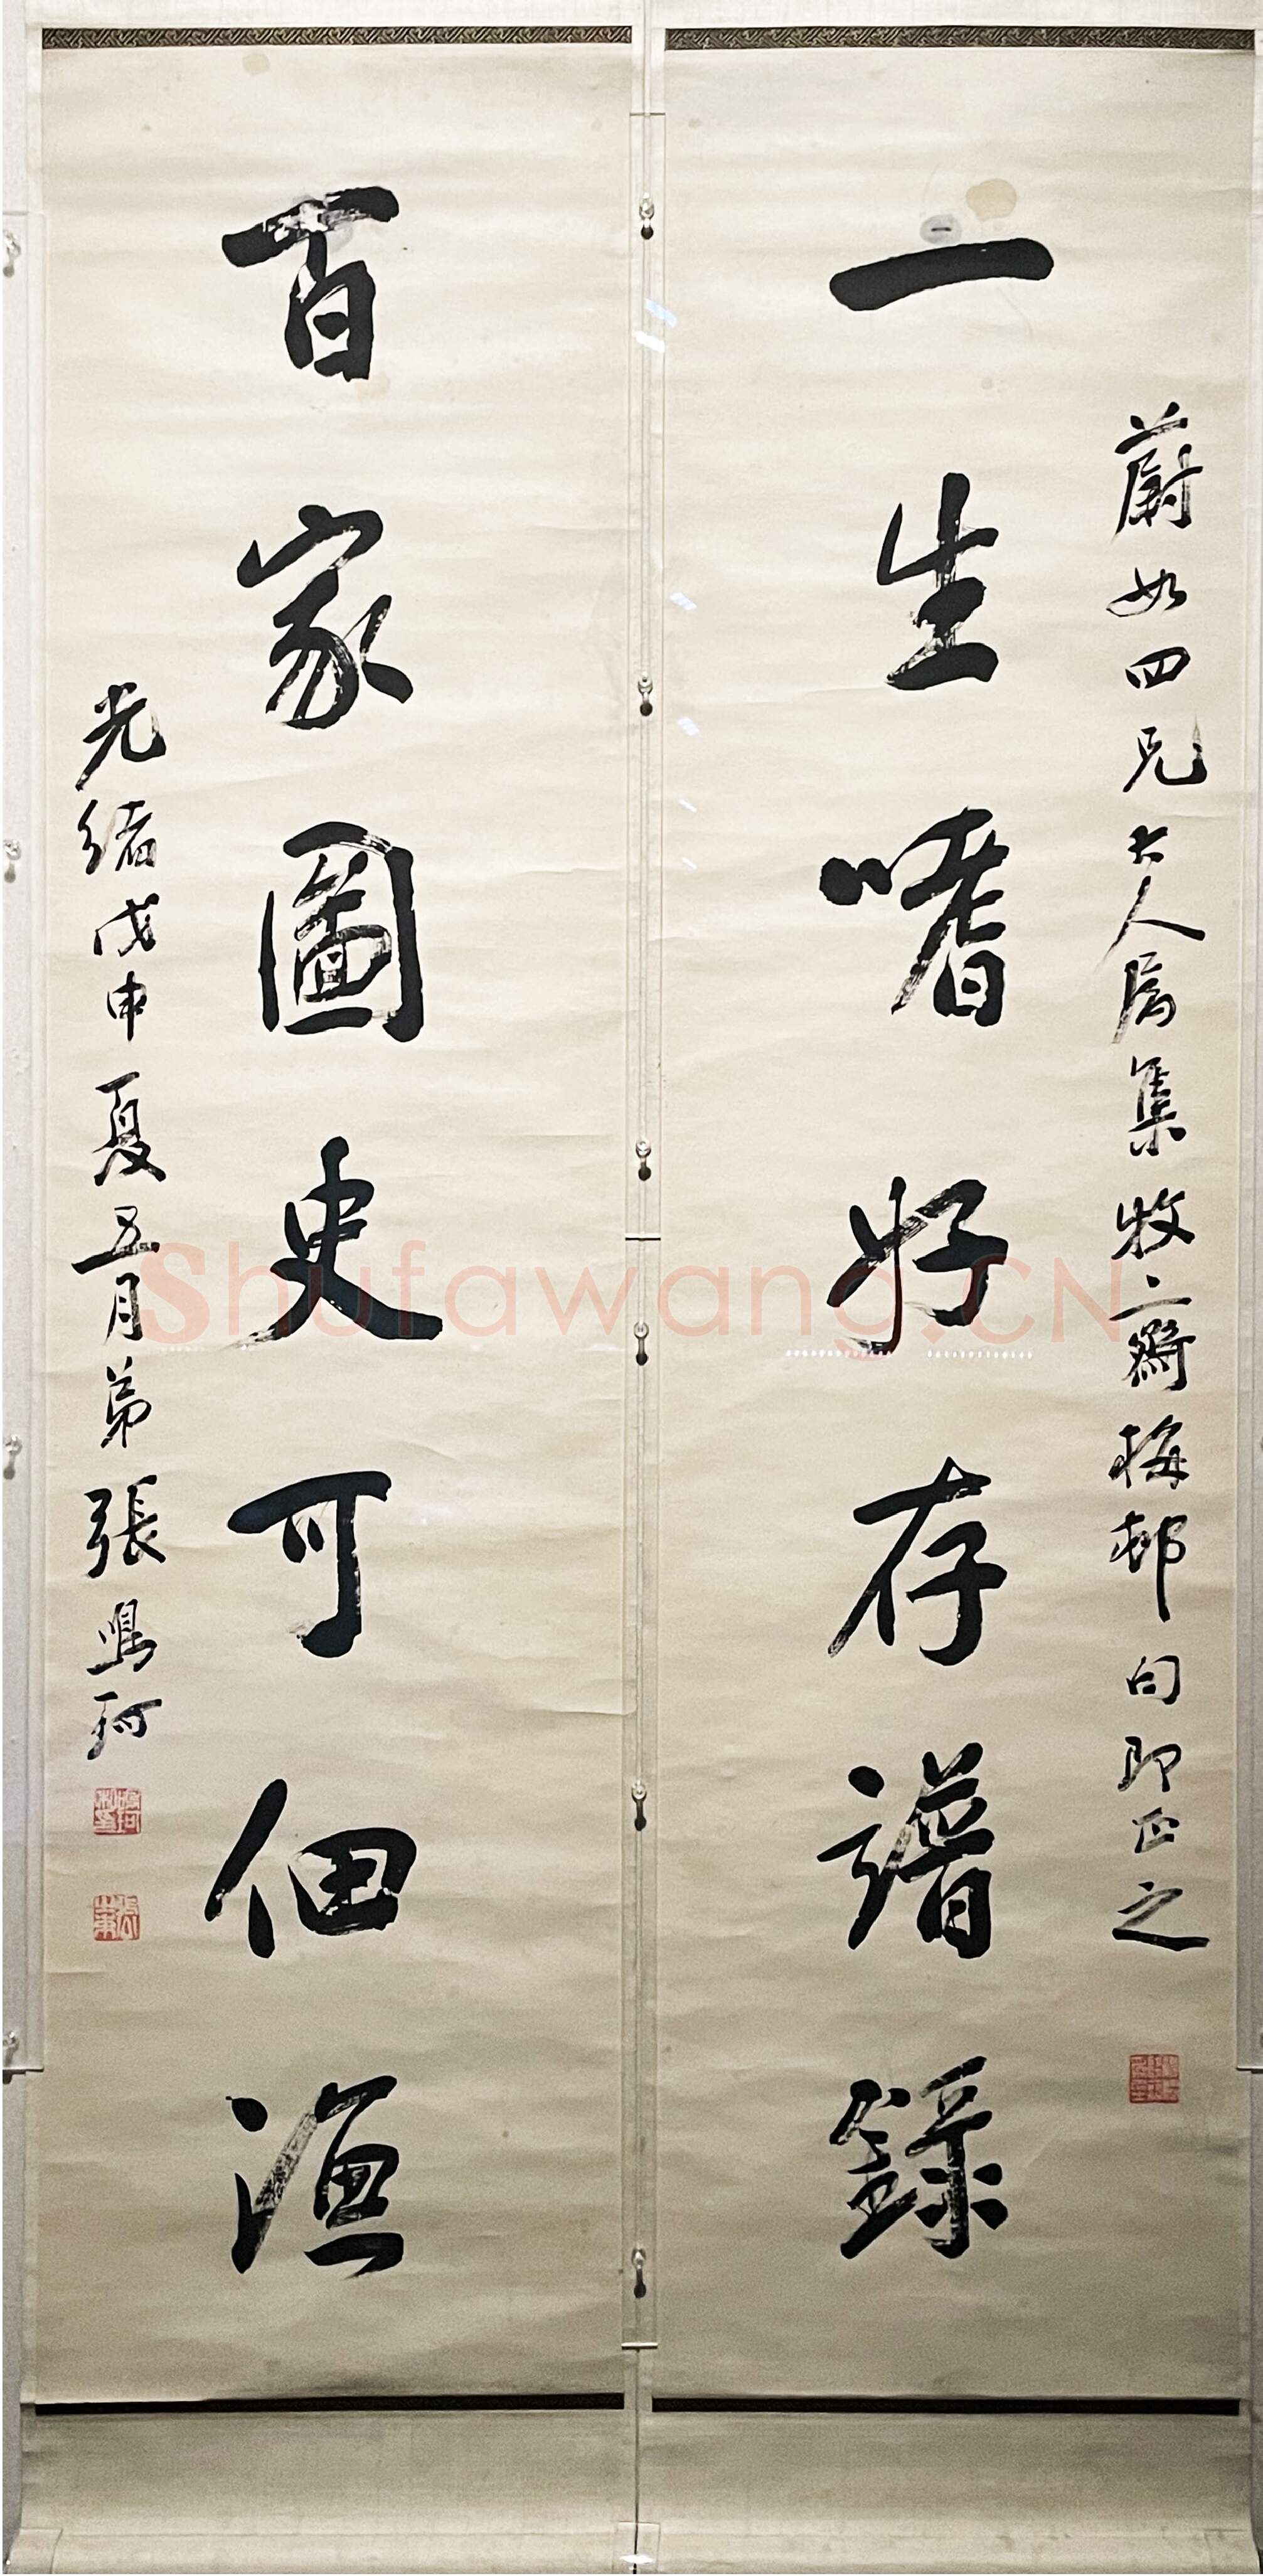 蔚如四兄大人属集牧齋梅邨句即正之
一生嗜好存譜錄
百家圖史可佃漁
光緒戊申夏五月弟張鳴珂
Shufawang.CN